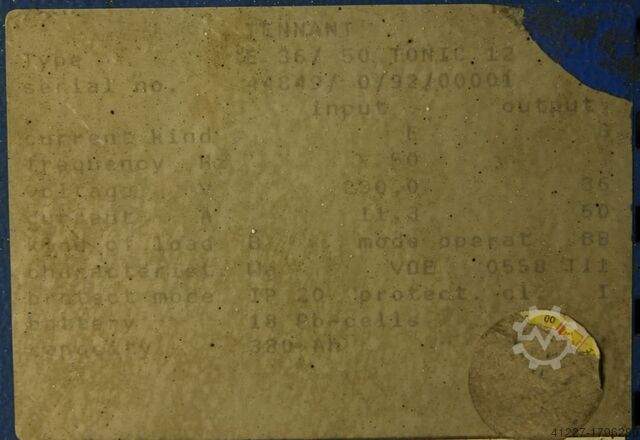 TENNANT
Type E 36/ 50 TONIC 12
serial no. 44849/ 0/92/00001
input output
current kind E G
frequency Hz 50
voltage V 230.0 36
current A 11.3 50
kind of load B mode operat BB
characterist. Wa VDE 0558 T11
protect mode IP 20 protect. cl. I
battery 18 Pb-cells
Ah
00
41227-1796290